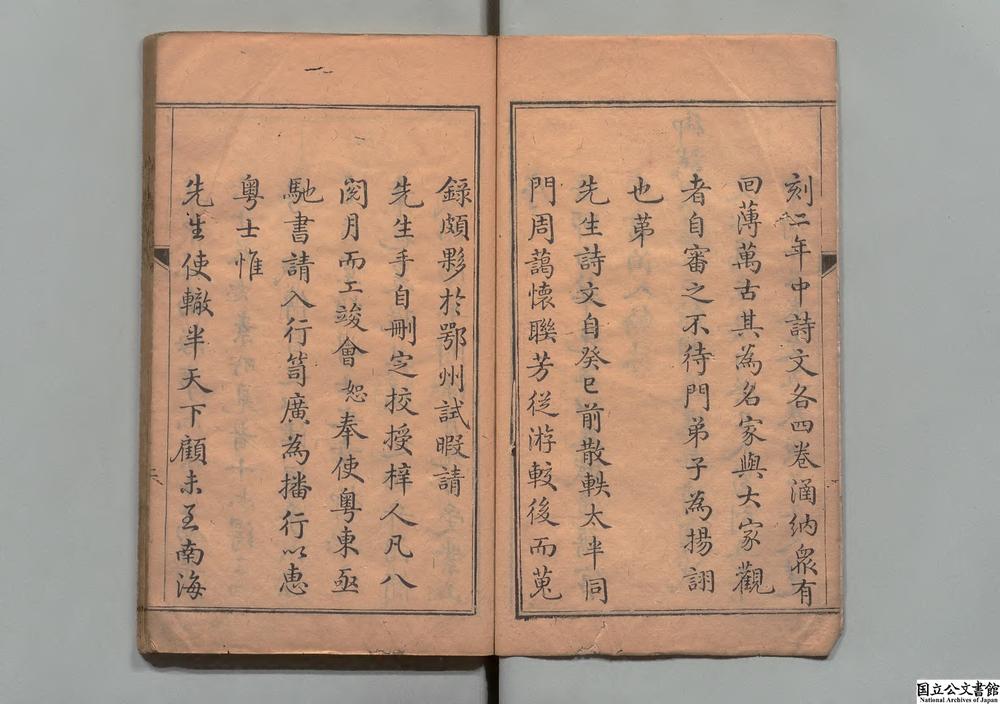 刻二年中詩文各四卷涵納衆有
回薄萬古其為名家與大家觀
者自審之不待門弟子為揚詡
也弟
先生詩文自癸巳前散軼太半同
門周蕅懷聯芳從游較後而蒐
錄頗夥於鄂州試暇請
先生手自刪定校授梓人凡八
閱月而工竣會恕奉使粵東亟
馳書請入行笥廣為播行以惠
粵士惟
先生使轍半天下顧未至南海
国立公文書館
National Archives of Japan